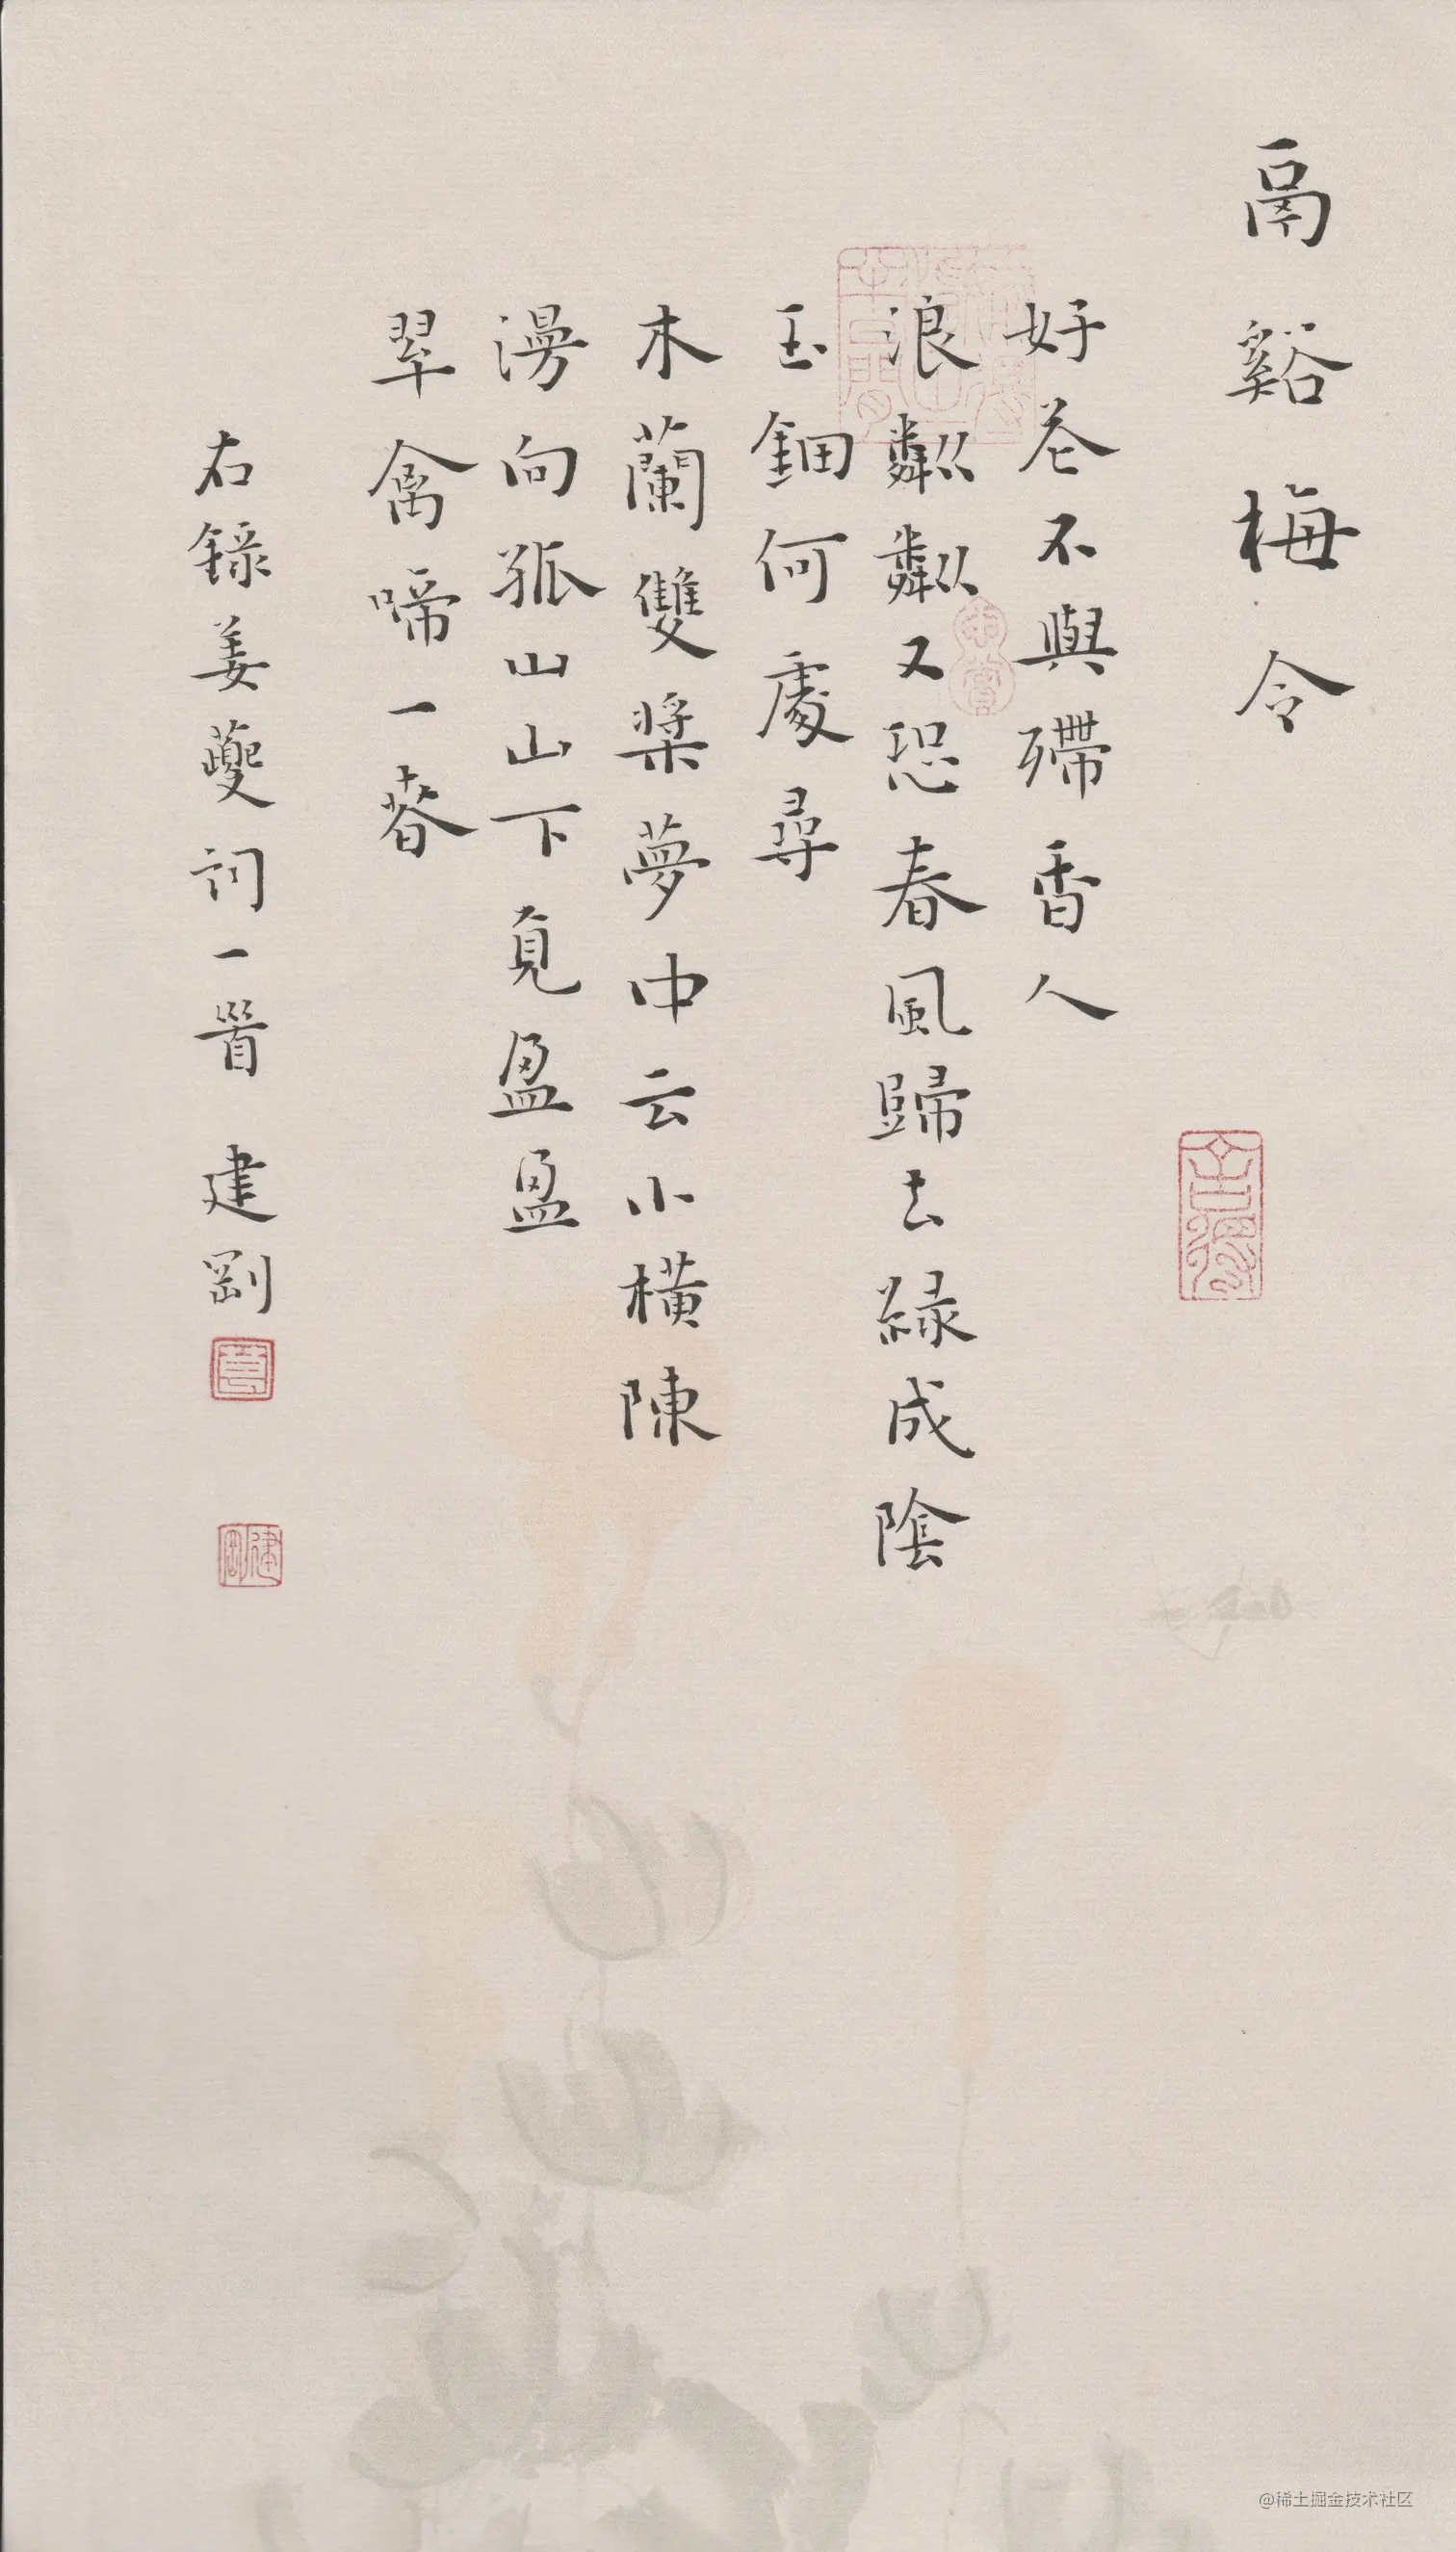 鬲谿梅令
好芲不與殢香人
浪粼粼又恐春風歸去緑成陰
玉鈿何處尋
木蘭雙槳夢中云小橫陳
漫向孤山山下覓盈盈
翠禽啼一萅
右錄姜夔詞一首 建剛
建剛
@稀土掘金技术社区